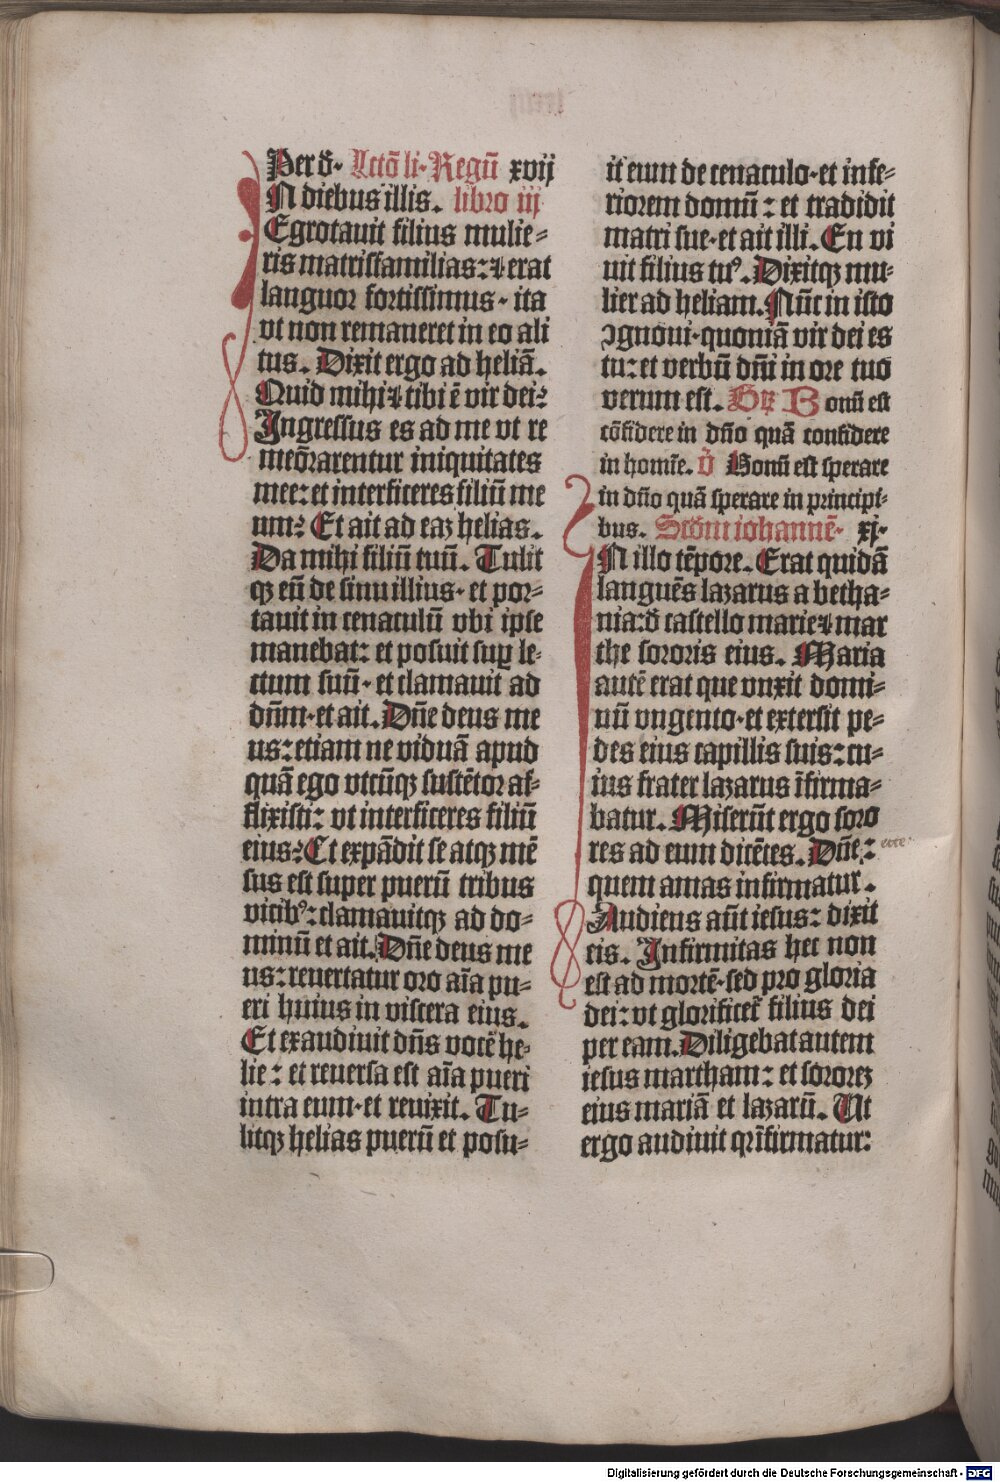 Per d̄. Lctō li. Regū xvij
IN diebus illis. libro iij
Egrotauit filius mulie⸗
ris matrisfamilias: ⁊ erat
languor fortissimus. ita
vt non remaneret in eo ali
tus. Dixit ergo ad heliā.
Quid mihi ⁊ tibi ē vir dei?
Ingressus es ad me vt re
meōrarentur iniquitates
mee: et interficeres filiū me
um? Et ait ad eaz helias.
Da mihi filiū tuū. Tulit
qꝫ eū de sinu illius. et por⸗
tauit in cenaculū vbi ipse
manebat: et posuit suꝑ le⸗
ctum suū. et clamauit ad
dn̄m. et ait. Dn̄e deus me
us: etiam ne viduā apud
quā ego vtcūqꝫ sustētor af⸗
flixisti: vt interficeres filiū
eius? Et expādit se atqꝫ mē
sus est super puerū tribus
vicibꝰ: clamauitqꝫ ad do⸗
minū et ait. Dn̄e deus me
us: reuertatur oro aīa pu⸗
eri huius in viscera eius.
Et exaudiuit dn̄s vocē he⸗
lie: et reuersa est aīa pueri
intra eum. et reuixit. Tu⸗
litqꝫ helias puerū et posu⸗
it eum de cenaculo. et infe⸗
riorem domū: et tradidit
matri sue. et ait illi. En vi
uit filius tuꝰ. Dixitqꝫ mu⸗
lier ad heliam. Nūc in isto
ꝯgnoui. quoniā vir dei es
tu: et verbū dn̄i in ore tuo
verum est. Gr̄ Bonū est
cōfidere in dn̄o quā confidere
in homīe. v̄ Bonū est sperare
in dn̄o quā sperare in principi⸗
bus. Scdm iohannē. xj.
IN illo tēpore. Erat quidā
languēs lazarus a betha⸗
nia: d̄ castello marie ⁊ mar
the sororis eius. Maria
autē erat que vnxit domi⸗
nū vngento. et extersit pe⸗
des eius capillis suis: cu⸗
ius frater lazarus īfirma⸗
batur. Miserūt ergo soro
res ad eum dicētes. Dn̄e: ecce
quem amas infirmatur.
Audiens aūt iesus: dixit
eis. Infirmitas hec non
est ad mortē. sed pro gloria
dei: vt glorificet᷑ filius dei
per eam. Diligebat autem
iesus martham: et sororeꝫ
eius mariā et lazarū. Ut
ergo audiuit qr̄ īfirmatur:
Digitalisierung gefördert durch die Deutsche Forschungsgemeinschaft - DFG